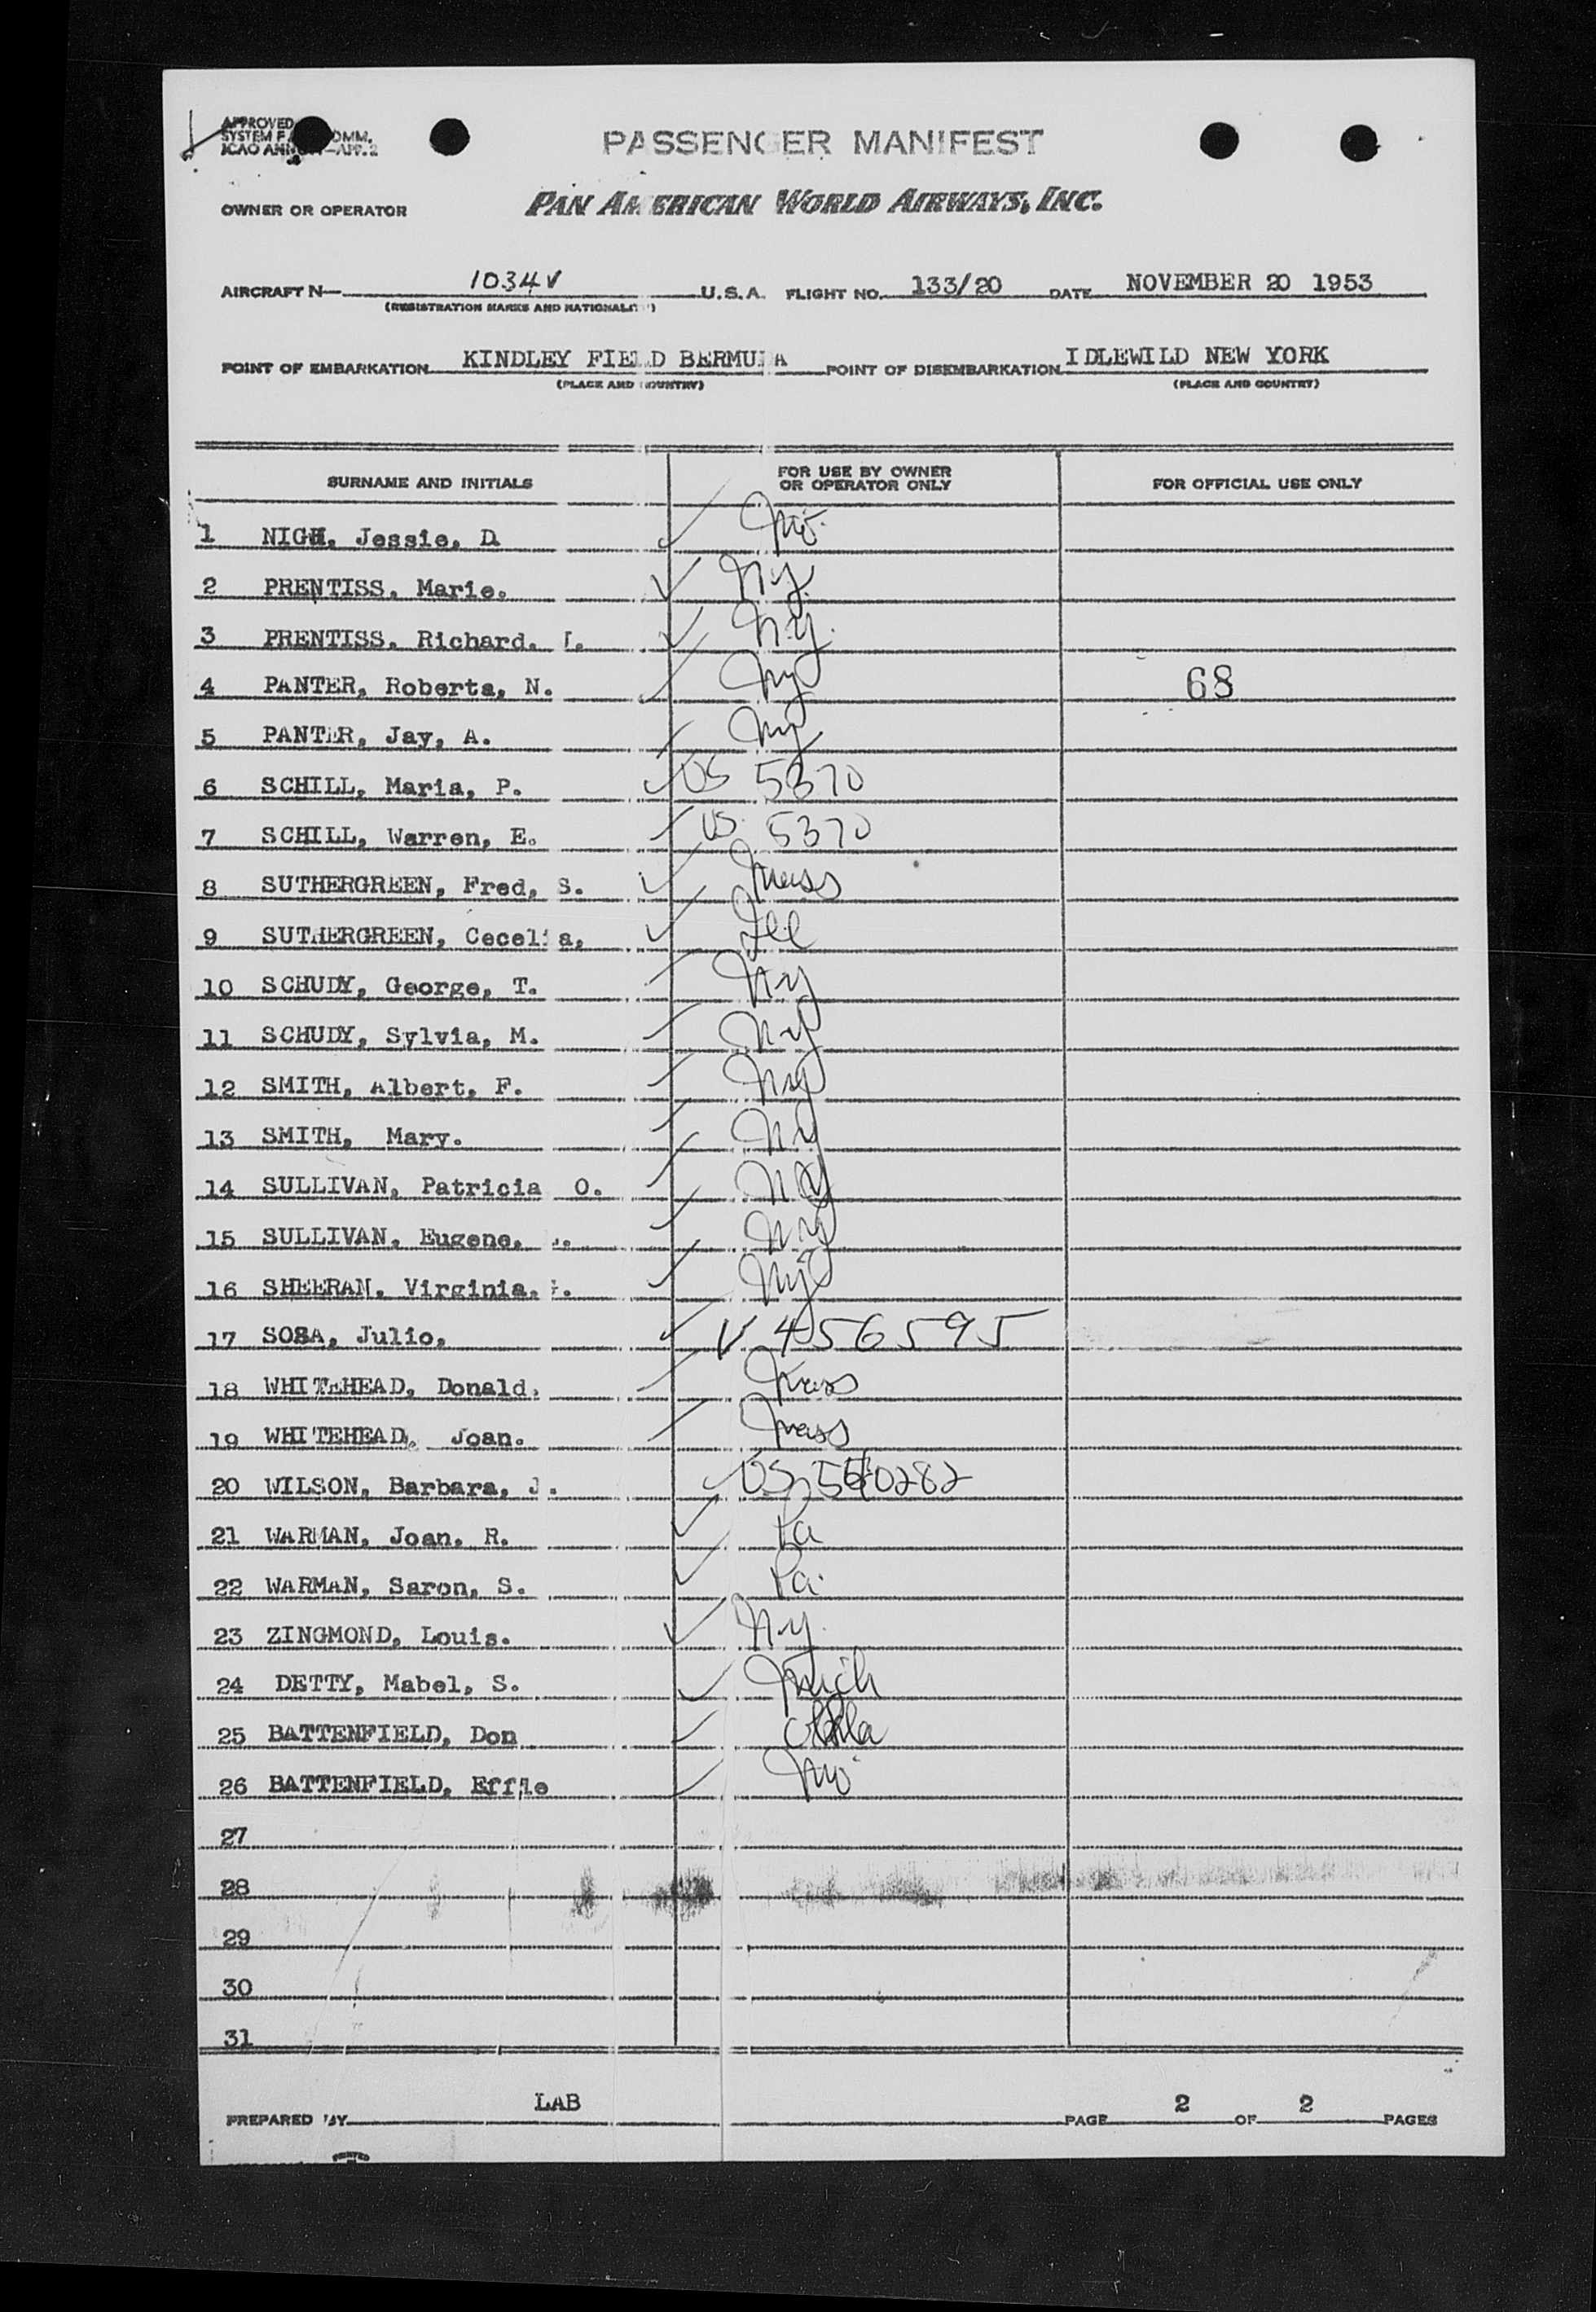 APPROVED
SYSTEM F COMM.
ICAO ANN -APP. 2
PASSENGER MANIFEST
OWNER OR OPERATOR PAN AMERICAN WORLD AIRWAYS, INC.
AIRCRAFT N— 1034V U.S.A. FLIGHT NO. 133/20 DATE NOVEMBER 20 1953
(REGISTRATION MARKS AND NATIONALITY)
POINT OF EMBARKATION KINDLEY FIELD BERMUDA POINT OF DISEMBARKATION IDLEWILD NEW YORK
(PLACE AND COUNTRY) (PLACE AND COUNTRY)
SURNAME AND INITIALS FOR USE BY OWNER OR OPERATOR ONLY FOR OFFICIAL USE ONLY
1 NIGH, Jessie, D. Mo.
2 PRENTISS, Marie. Ny.
3 PRENTISS, Richard. N.Y.
4 PANTER, Roberta, N. Ny 68
5 PANTER, Jay, A. Ny
6 SCHILL, Maria, P. US 5370
7 SCHILL, Warren, E. US. 5370
8 SUTHERGREEN, Fred, S. Mass
9 SUTHERGREEN, Cecelia, Ill
10 SCHUDY, George, T. N.Y
11 SCHUDY, Sylvia, M. NY
12 SMITH, Albert, F. NY
13 SMITH, Mary. NY
14 SULLIVAN, Patricia O. NY
15 SULLIVAN, Eugene, NY
16 SHEERAN, Virginia, NY
17 SOSA, Julio, V 456595
18 WHITEHEAD, Donald, Mass
19 WHITEHEAD, Joan. Mass
20 WILSON, Barbara, J. US
21 WARMAN, Joan, R. Pa
22 WARMAN, Saron, S. Pa.
23 ZINGMOND, Louis. N.Y.
24 DETTY, Mabel, S. Mich
25 BATTENFIELD, Don Okla
26 BATTENFIELD, Effie Mo
27
28
29
30
31
PREPARED BY LAB PAGE 2 OF 2 PAGES
PRINTED